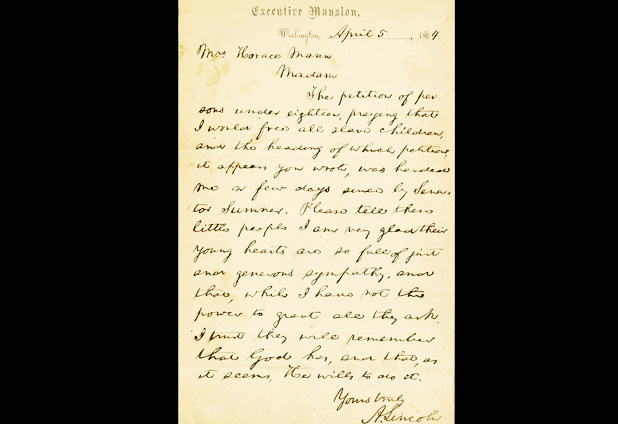 Executive Mansion,
Washington, April 5, 1864.
Mrs Horace Mann
Madam
The petition of per-
sons under eighteen, praying that
I would free all slave children,
and the heading of which petition
it appears you wrote, was handed
me a few days since by Sena-
tor Sumner. Please tell these
little people I am very glad their
young hearts are so full of just
and generous sympathy, and
that, while I have not the
power to grant all they ask,
I trust they will remember
that God has, and that, as
it seems, He wills to do it.
Yours truly
A. Lincoln